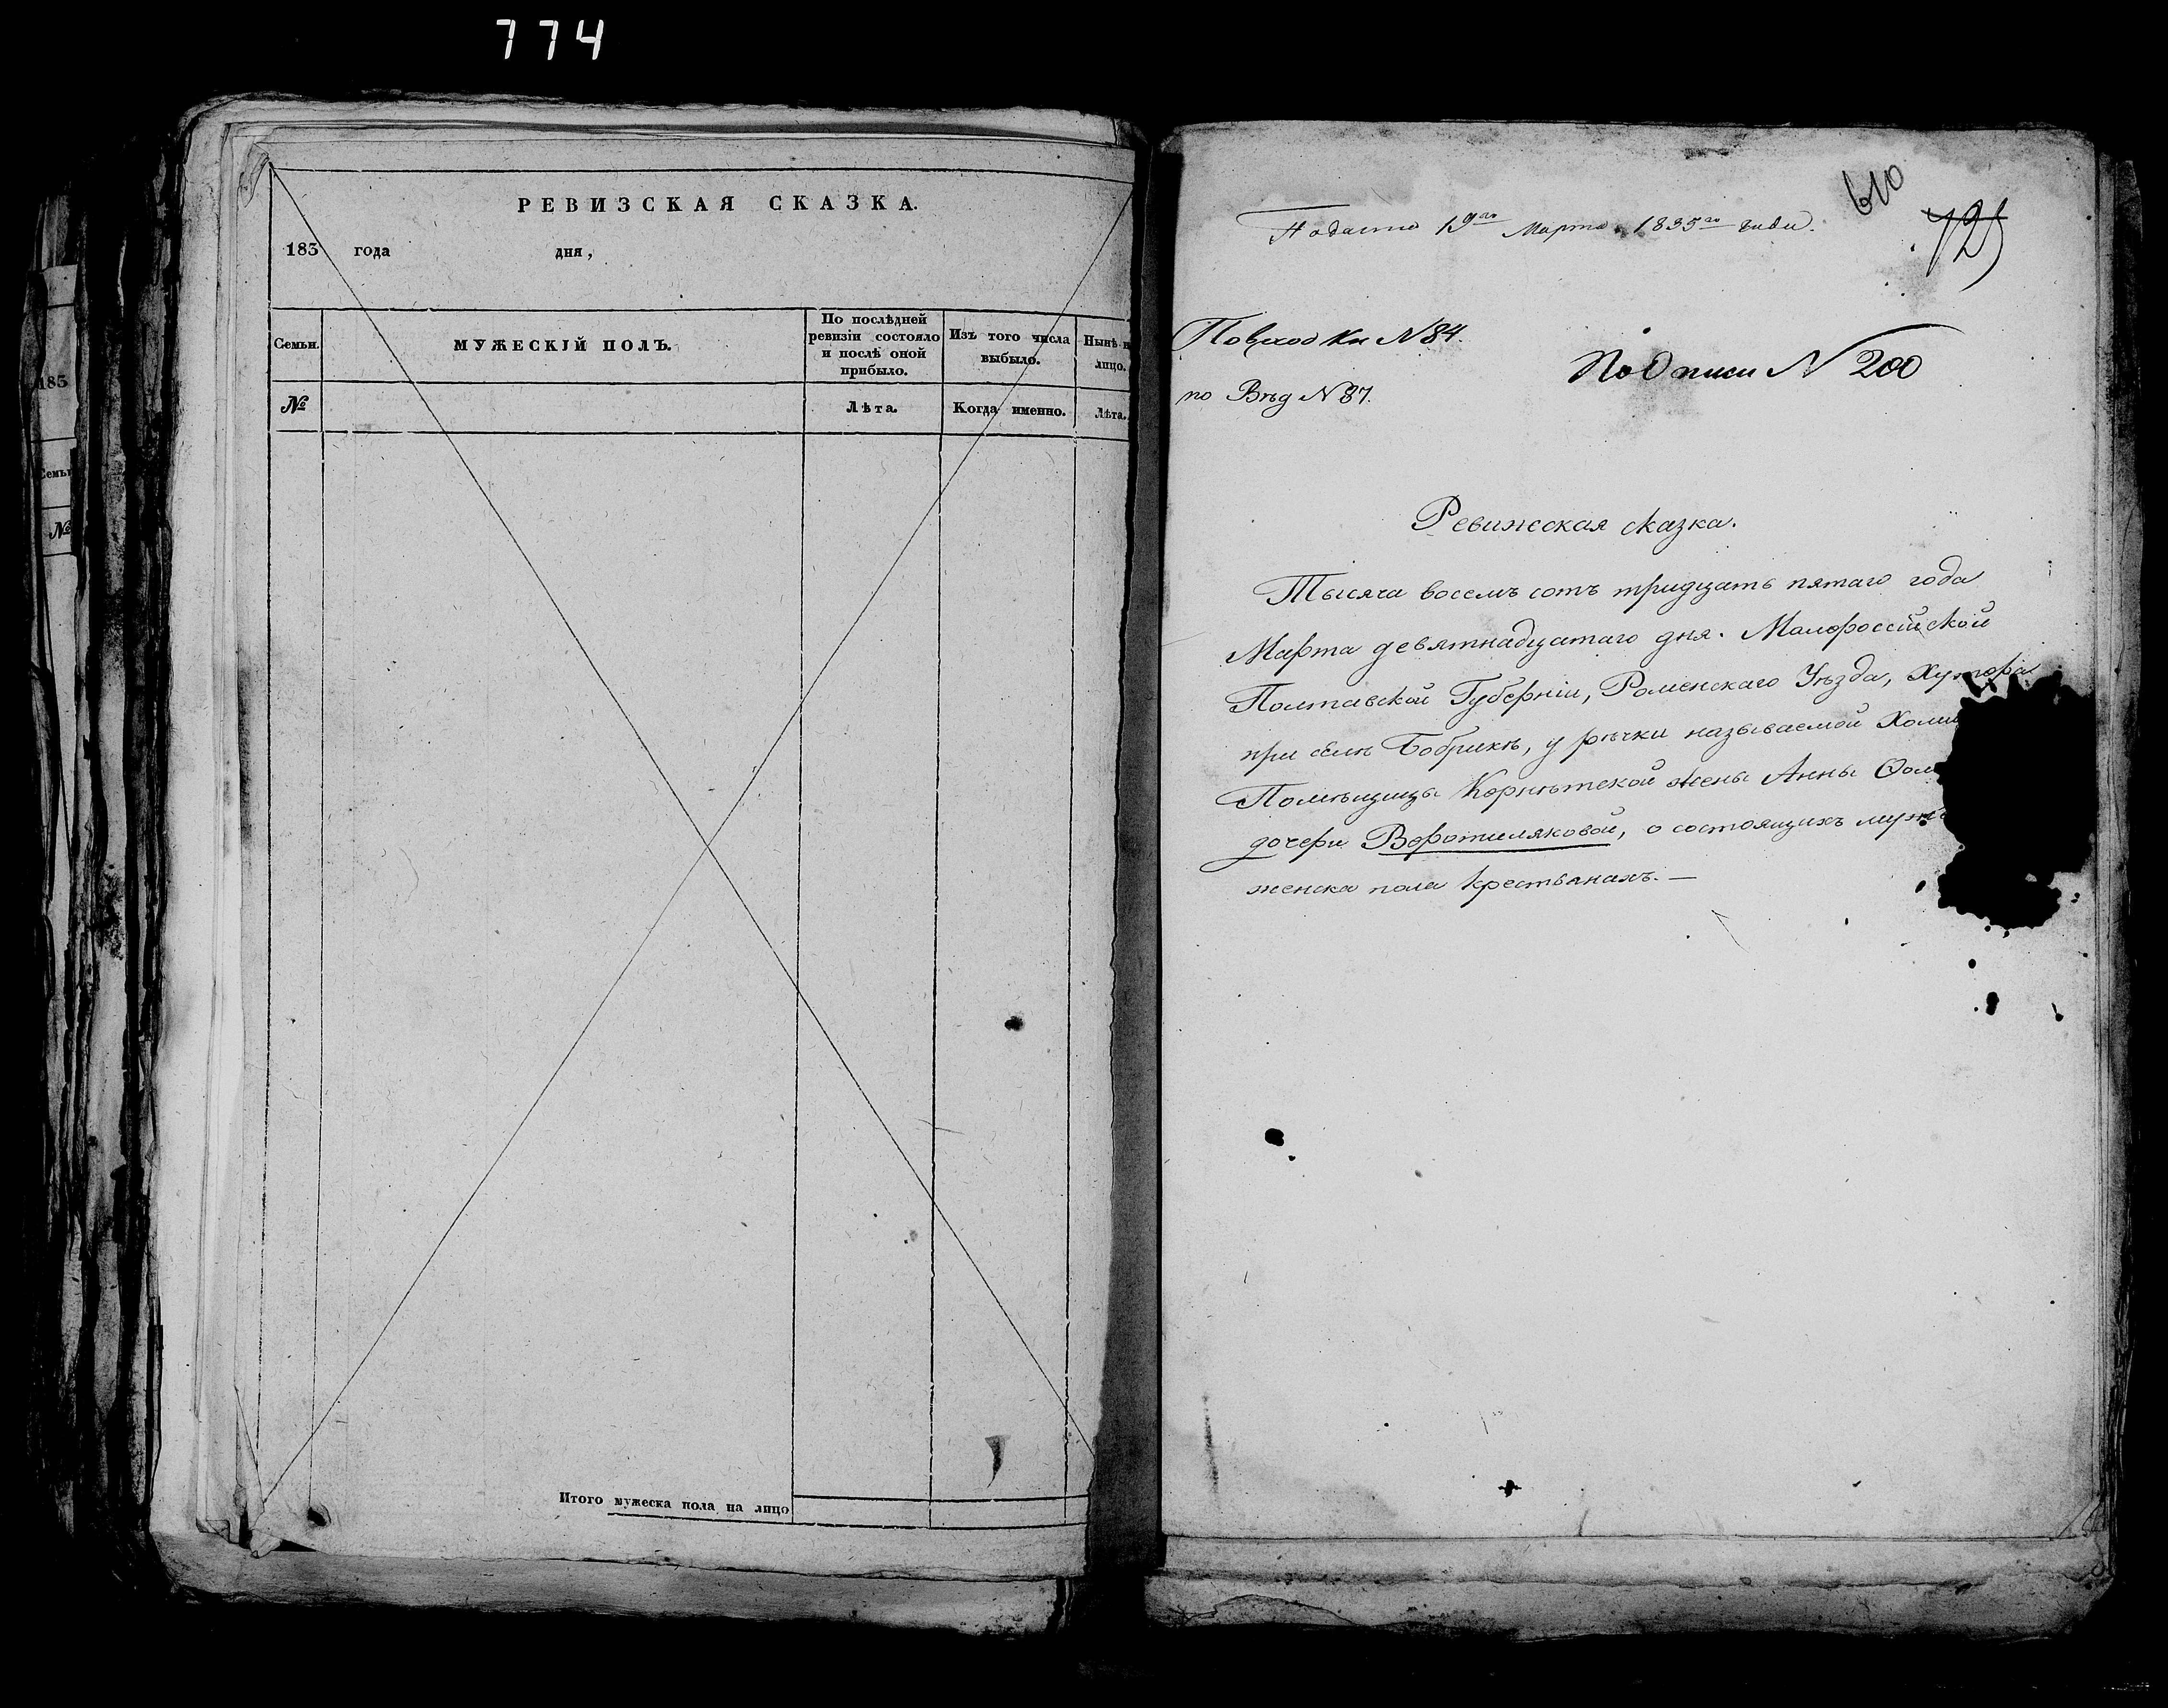 774
РЕВИЗСКАЯ СКАЗКА.
183 года дня,
Семьи.
МУЖЕСКІЙ ПОЛЪ.
По послѣдней
ревизіи состояло
и послѣ оной
прибыло.
Изъ того числа
выбыло.
Нынѣ н
лицо.
№
Лѣта.
Когда именно.
Лѣта.
Итого мужеска пола на лицо
183
Семьи
№
610
725
Подана 19го Марта 1835го года.
По входу Кн N 84.
по Вѣд N 87.
По Описи N 200
Ревижская сказка.
Тысяча восемъ сотъ тридцать пятаго года
Марта девятнадцатаго дня. Малороссійской
Полтавской Губерніи, Роменскаго Уѣзда, Хутора
при селѣ Бобрикѣ, у рѣчки называемой
Помѣщицы Корнѣтской жены Анны
дочери Воротиляковой, о состоящихъ
женска пола крестьянахъ. —